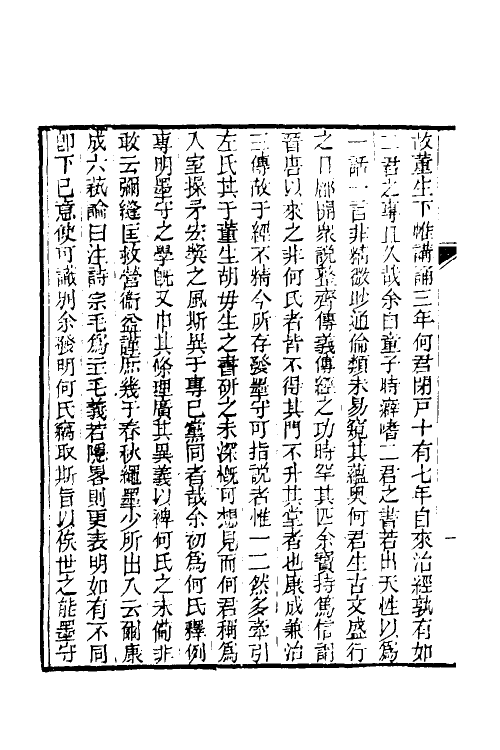 故董生下帷講誦三年何君閉戸十有七年自來治經孰有如
二君之專且久哉余自童子時癖嗜二君之書若出天性以爲
一話一言非精微眇通倫類未易窺其蘊奧何君生古文盛行
之日廓開衆說整齊傳義傳經之功時罕其匹余寶持篤信謂
晉唐以來之非何氏者皆不得其門不升其堂者也康成兼治
三傳故于經不精今所存發墨守可指說者惟一二然多牽引
左氏其于董生胡毋生之書研之未深概可想見而何君稱爲
入室操矛宏奬之風斯異于專己黨同者哉余初爲何氏釋例
專明墨守之學既又申其條理廣其異義以裨何氏之未備非
敢云彌縫匡救營衞益謹庶幾于春秋繩墨少所出入云爾康
成六蓺論曰注詩宗毛爲主毛義若隱畧則更表明如有不同
卽下己意使可識別余發明何氏竊取斯旨以俟世之能墨守
一